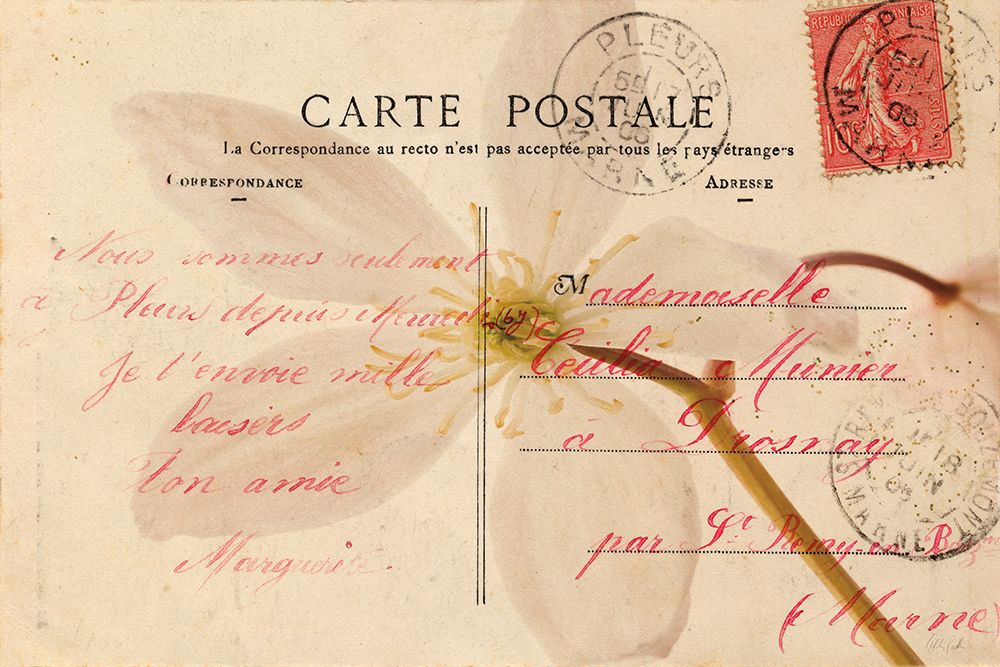 CARTE POSTALE
La Correspondance au recto n'est pas acceptée par tous les pays étrangers
CORRESPONDANCE
ADRESSE
REPUBLIQUE FRANÇAISE
10
POSTES
PLEURS
MARNE
Nous sommes seulement
à Pleurs depuis Mercredi (6 y)
Je t'envoie mille
baisers
Ton amie
Marguerite.
Mademoiselle
Cécilia Munier
à Drosnay
par St Remy-en-Bouzemont
(Marne)
18
MARNE